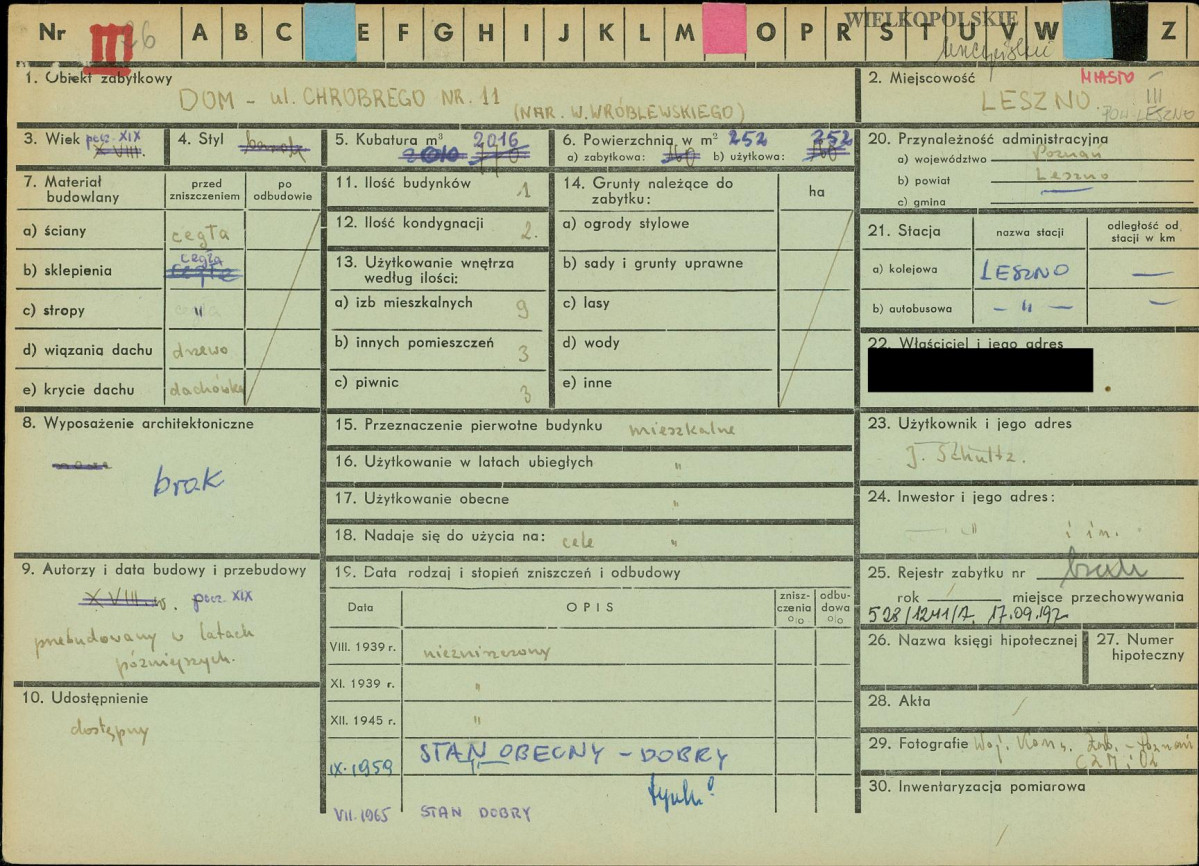 Nr III 26 A B C E F G H I J K L M O P R S T U V W Z
WIELKOPOLSKIE
1. Obiekt zabytkowy
DOM - ul. CHROBREGO NR. 11
(NAR. W. WRÓBLEWSKIEGO)
2. Miejscowość MIASTO
LESZNO. III
POW. LESZNO
3. Wiek pocz. XIX
XVIII.
4. Styl barok
5. Kubatura m³ 2016
2010
6. Powierzchnia w m² 252 252
a) zabytkowa: b) użytkowa:
20. Przynależność administracyjna
a) województwo Poznań
b) powiat Leszno
c) gmina
7. Materiał budowlany
przed zniszczeniem
po odbudowie
a) ściany cegła
b) sklepienia cegła
cegła
c) stropy "
d) wiązania dachu drzewo
e) krycie dachu dachówka
11. Ilość budynków 1
12. Ilość kondygnacji 2.
13. Użytkowanie wnętrza według ilości:
a) izb mieszkalnych 9
b) innych pomieszczeń 3
c) piwnic 3
14. Grunty należące do zabytku: ha
a) ogrody stylowe
b) sady i grunty uprawne
c) lasy
d) wody
e) inne
21. Stacja nazwa stacji odległość od stacji w km
a) kolejowa LESZNO —
b) autobusowa — " — —
22. Właściciel i jego adres
8. Wyposażenie architektoniczne
brak
15. Przeznaczenie pierwotne budynku mieszkalne
16. Użytkowanie w latach ubiegłych "
17. Użytkowanie obecne "
18. Nadaje się do użycia na: cele "
23. Użytkownik i jego adres
J. Schultz.
24. Inwestor i jego adres:
— " i in.
9. Autorzy i data budowy i przebudowy
XVIII w. pocz. XIX
przebudowany w latach
późniejszych.
19. Data rodzaj i stopień zniszczeń i odbudowy
Data OPIS zniszczenia o|o odbudowa o|o
VIII. 1939 r. niezniszczony
XI. 1939 r. "
XII. 1945 r. "
IX. 1959 STAN OBECNY - DOBRY
VII. 1965 STAN DOBRY
25. Rejestr zabytku nr brak
rok / miejsce przechowywania
528/1241/A, 17.09.197
26. Nazwa księgi hipotecznej
27. Numer hipoteczny
10. Udostępnienie
dostępny
28. Akta /
29. Fotografie Woj. Kons. Zab. - Poznań
30. Inwentaryzacja pomiarowa
/